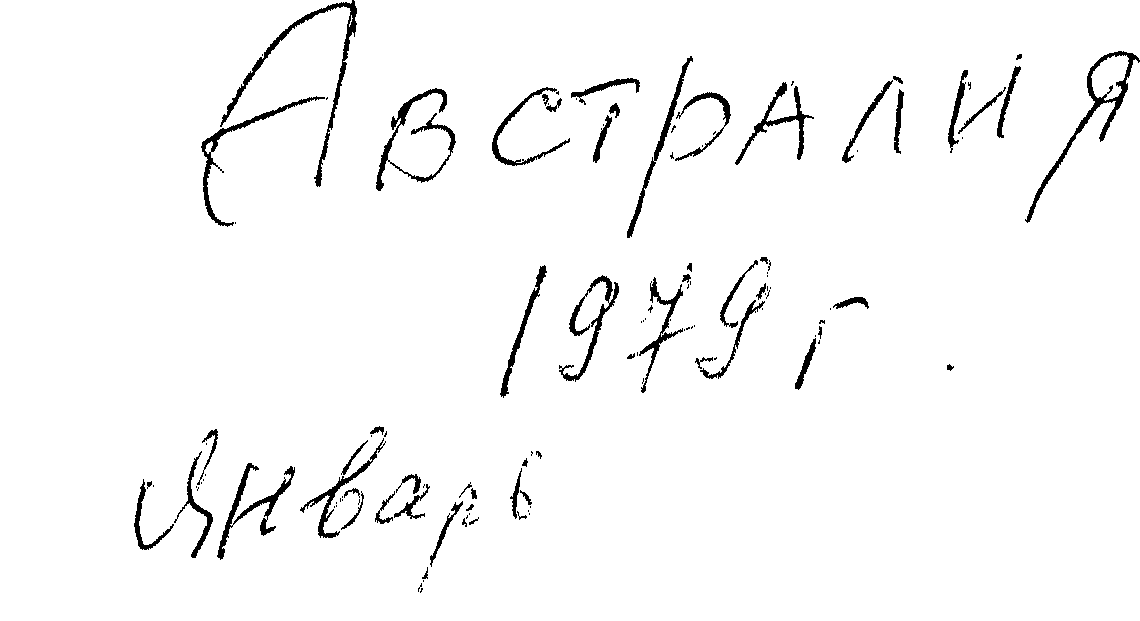 Австралия
1979 г.
Январь